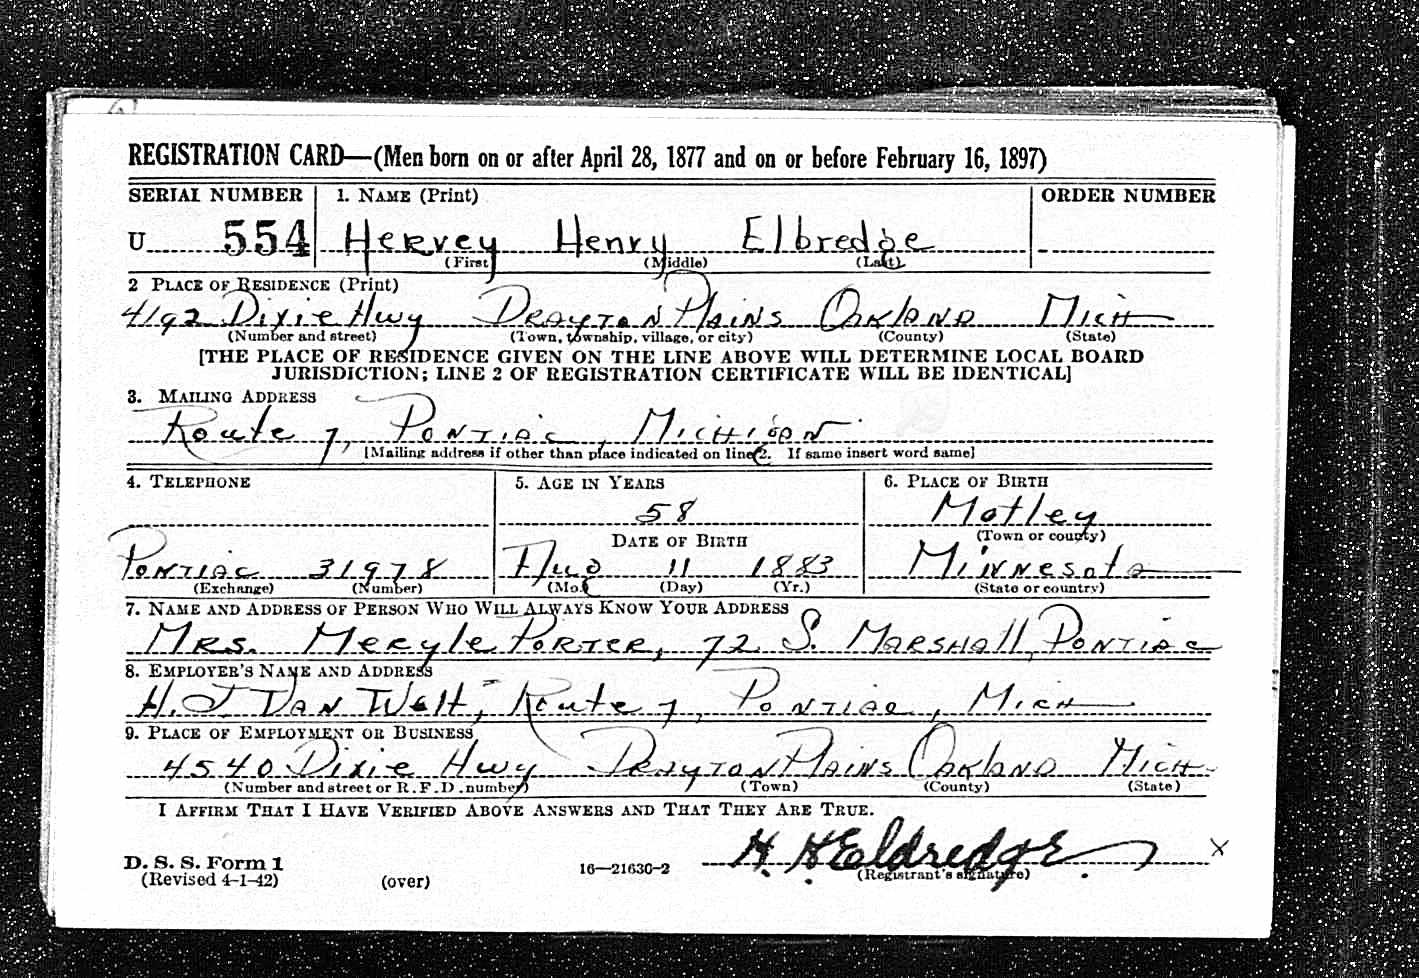 REGISTRATION CARD—(Men born on or after April 28, 1877 and on or before February 16, 1897)
SERIAL NUMBER 1. NAME (Print) ORDER NUMBER
U 554 Hervey Henry Elbredge
(First) (Middle) (Last)
2 PLACE OF RESIDENCE (Print)
4192 Dixie Hwy Drayton Plains Oakland Mich
(Number and street) (Town, township, village, or city) (County) (State)
[THE PLACE OF RESIDENCE GIVEN ON THE LINE ABOVE WILL DETERMINE LOCAL BOARD
JURISDICTION; LINE 2 OF REGISTRATION CERTIFICATE WILL BE IDENTICAL]
3. MAILING ADDRESS
Route 7, Pontiac, Michigan
[Mailing address if other than place indicated on line 2. If same insert word same]
4. TELEPHONE 5. AGE IN YEARS 6. PLACE OF BIRTH
58 Motley
DATE OF BIRTH (Town or county)
Pontiac 31978 Aug 11 1883 Minnesota
(Exchange) (Number) (Mo.) (Day) (Yr.) (State or country)
7. NAME AND ADDRESS OF PERSON WHO WILL ALWAYS KNOW YOUR ADDRESS
Mrs. Meryle Porter, 72 S. Marshall, Pontiac
8. EMPLOYER'S NAME AND ADDRESS
H. J. Van Welt, Route 7, Pontiac, Mich
9. PLACE OF EMPLOYMENT OR BUSINESS
4540 Dixie Hwy Drayton Plains Oakland Mich
(Number and street or R. F. D. number) (Town) (County) (State)
I AFFIRM THAT I HAVE VERIFIED ABOVE ANSWERS AND THAT THEY ARE TRUE.
H. H Eldredge. X
D. S. S. Form 1 16—21630-2 (Registrant's signature)
(Revised 4-1-42) (over)